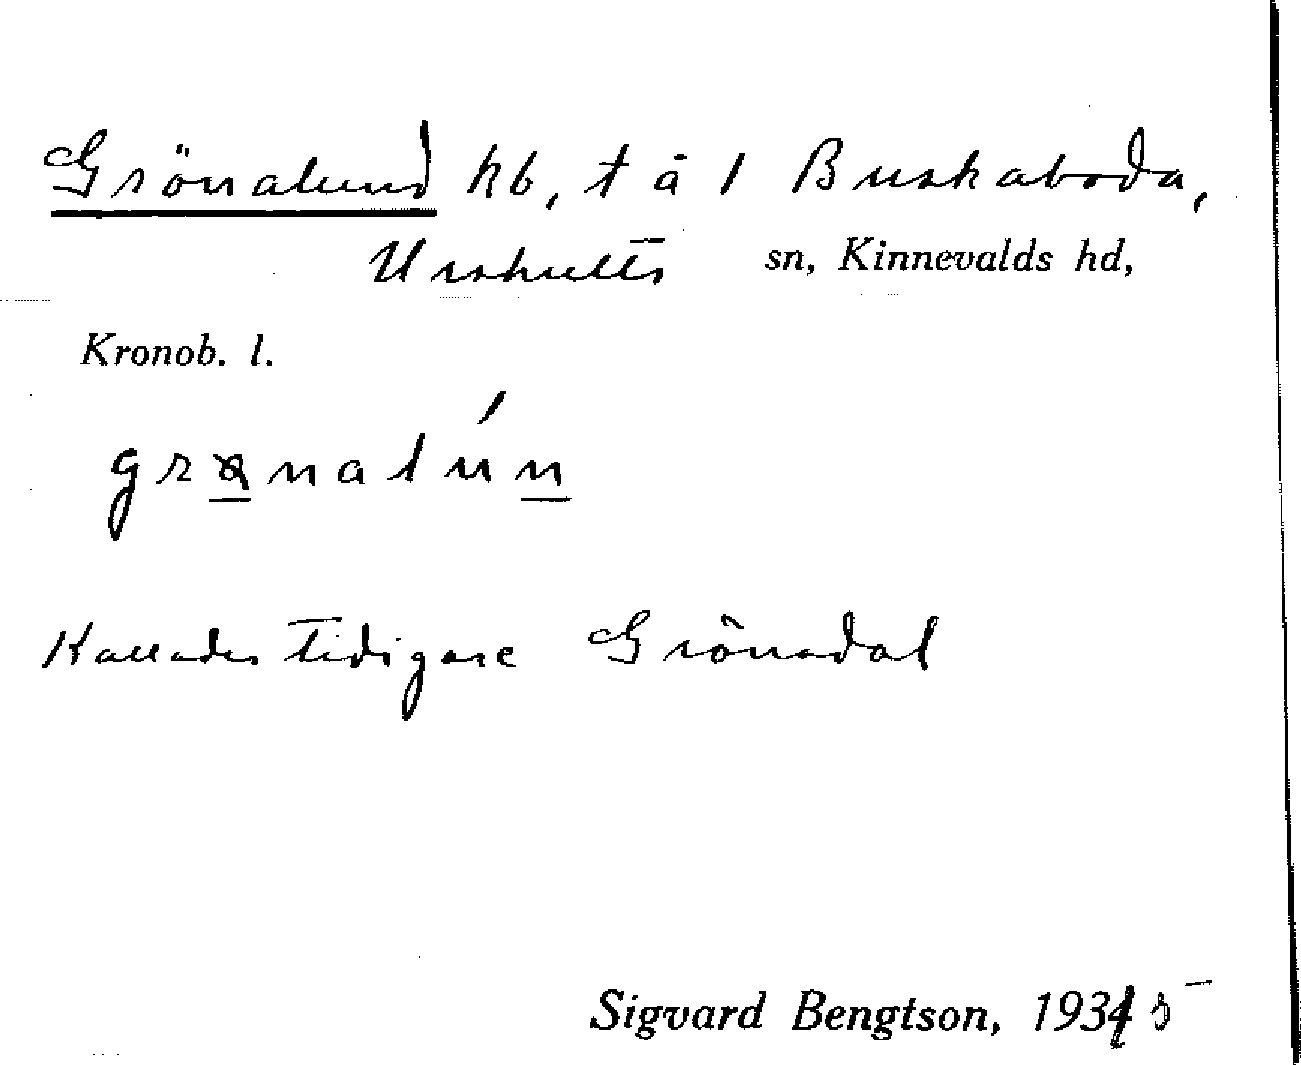 Grönalund kb, t å 1 Buskaboda,
Urshults sn, Kinnevalds hd,
Kronob. l.
grɷnalún
Kallades tidigare Grönadal
Sigvard Bengtson, 1935